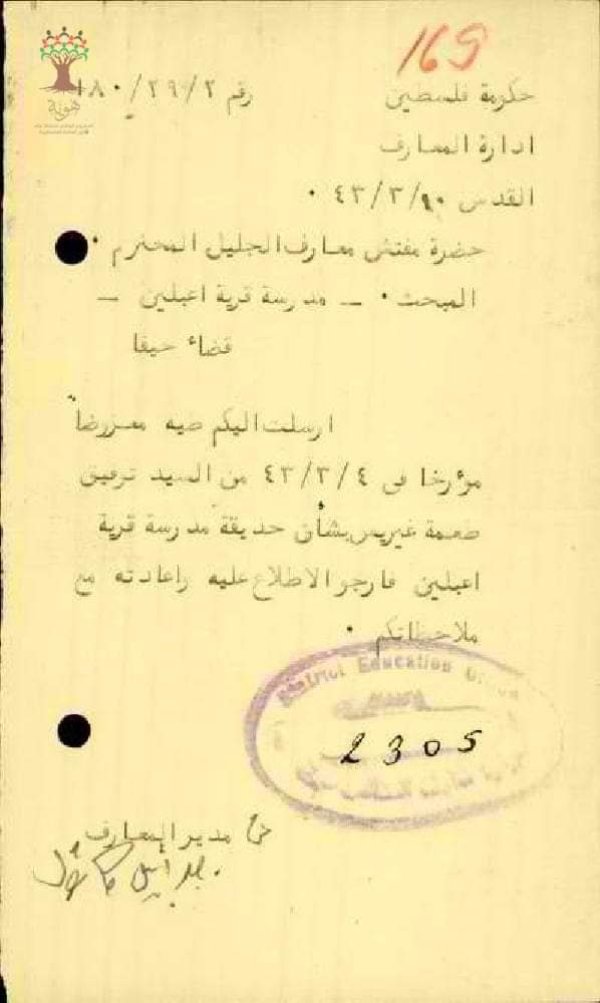 169
حكومة فلسطين رقم ١٨٠/٢٩/٢
ادارة المعارف
القدس ٤٣/٣/١٠ ٠
حضرة مفتش معارف الجليل المحترم ٠
المبحث ٠ ــ مدرسة قرية اعبلين ــ
قضاء حيفا
ارسلت اليكم طيه معروضا
مؤرخا في ٤٣/٣/٤ من السيد توفيق
طعمة غيريس بشأن حديقة مدرسة قرية
اعبلين فارجو الاطلاع عليه واعادته مع
ملاحظاتكم ٠
District Education
2305
مدير المعارف
هوية